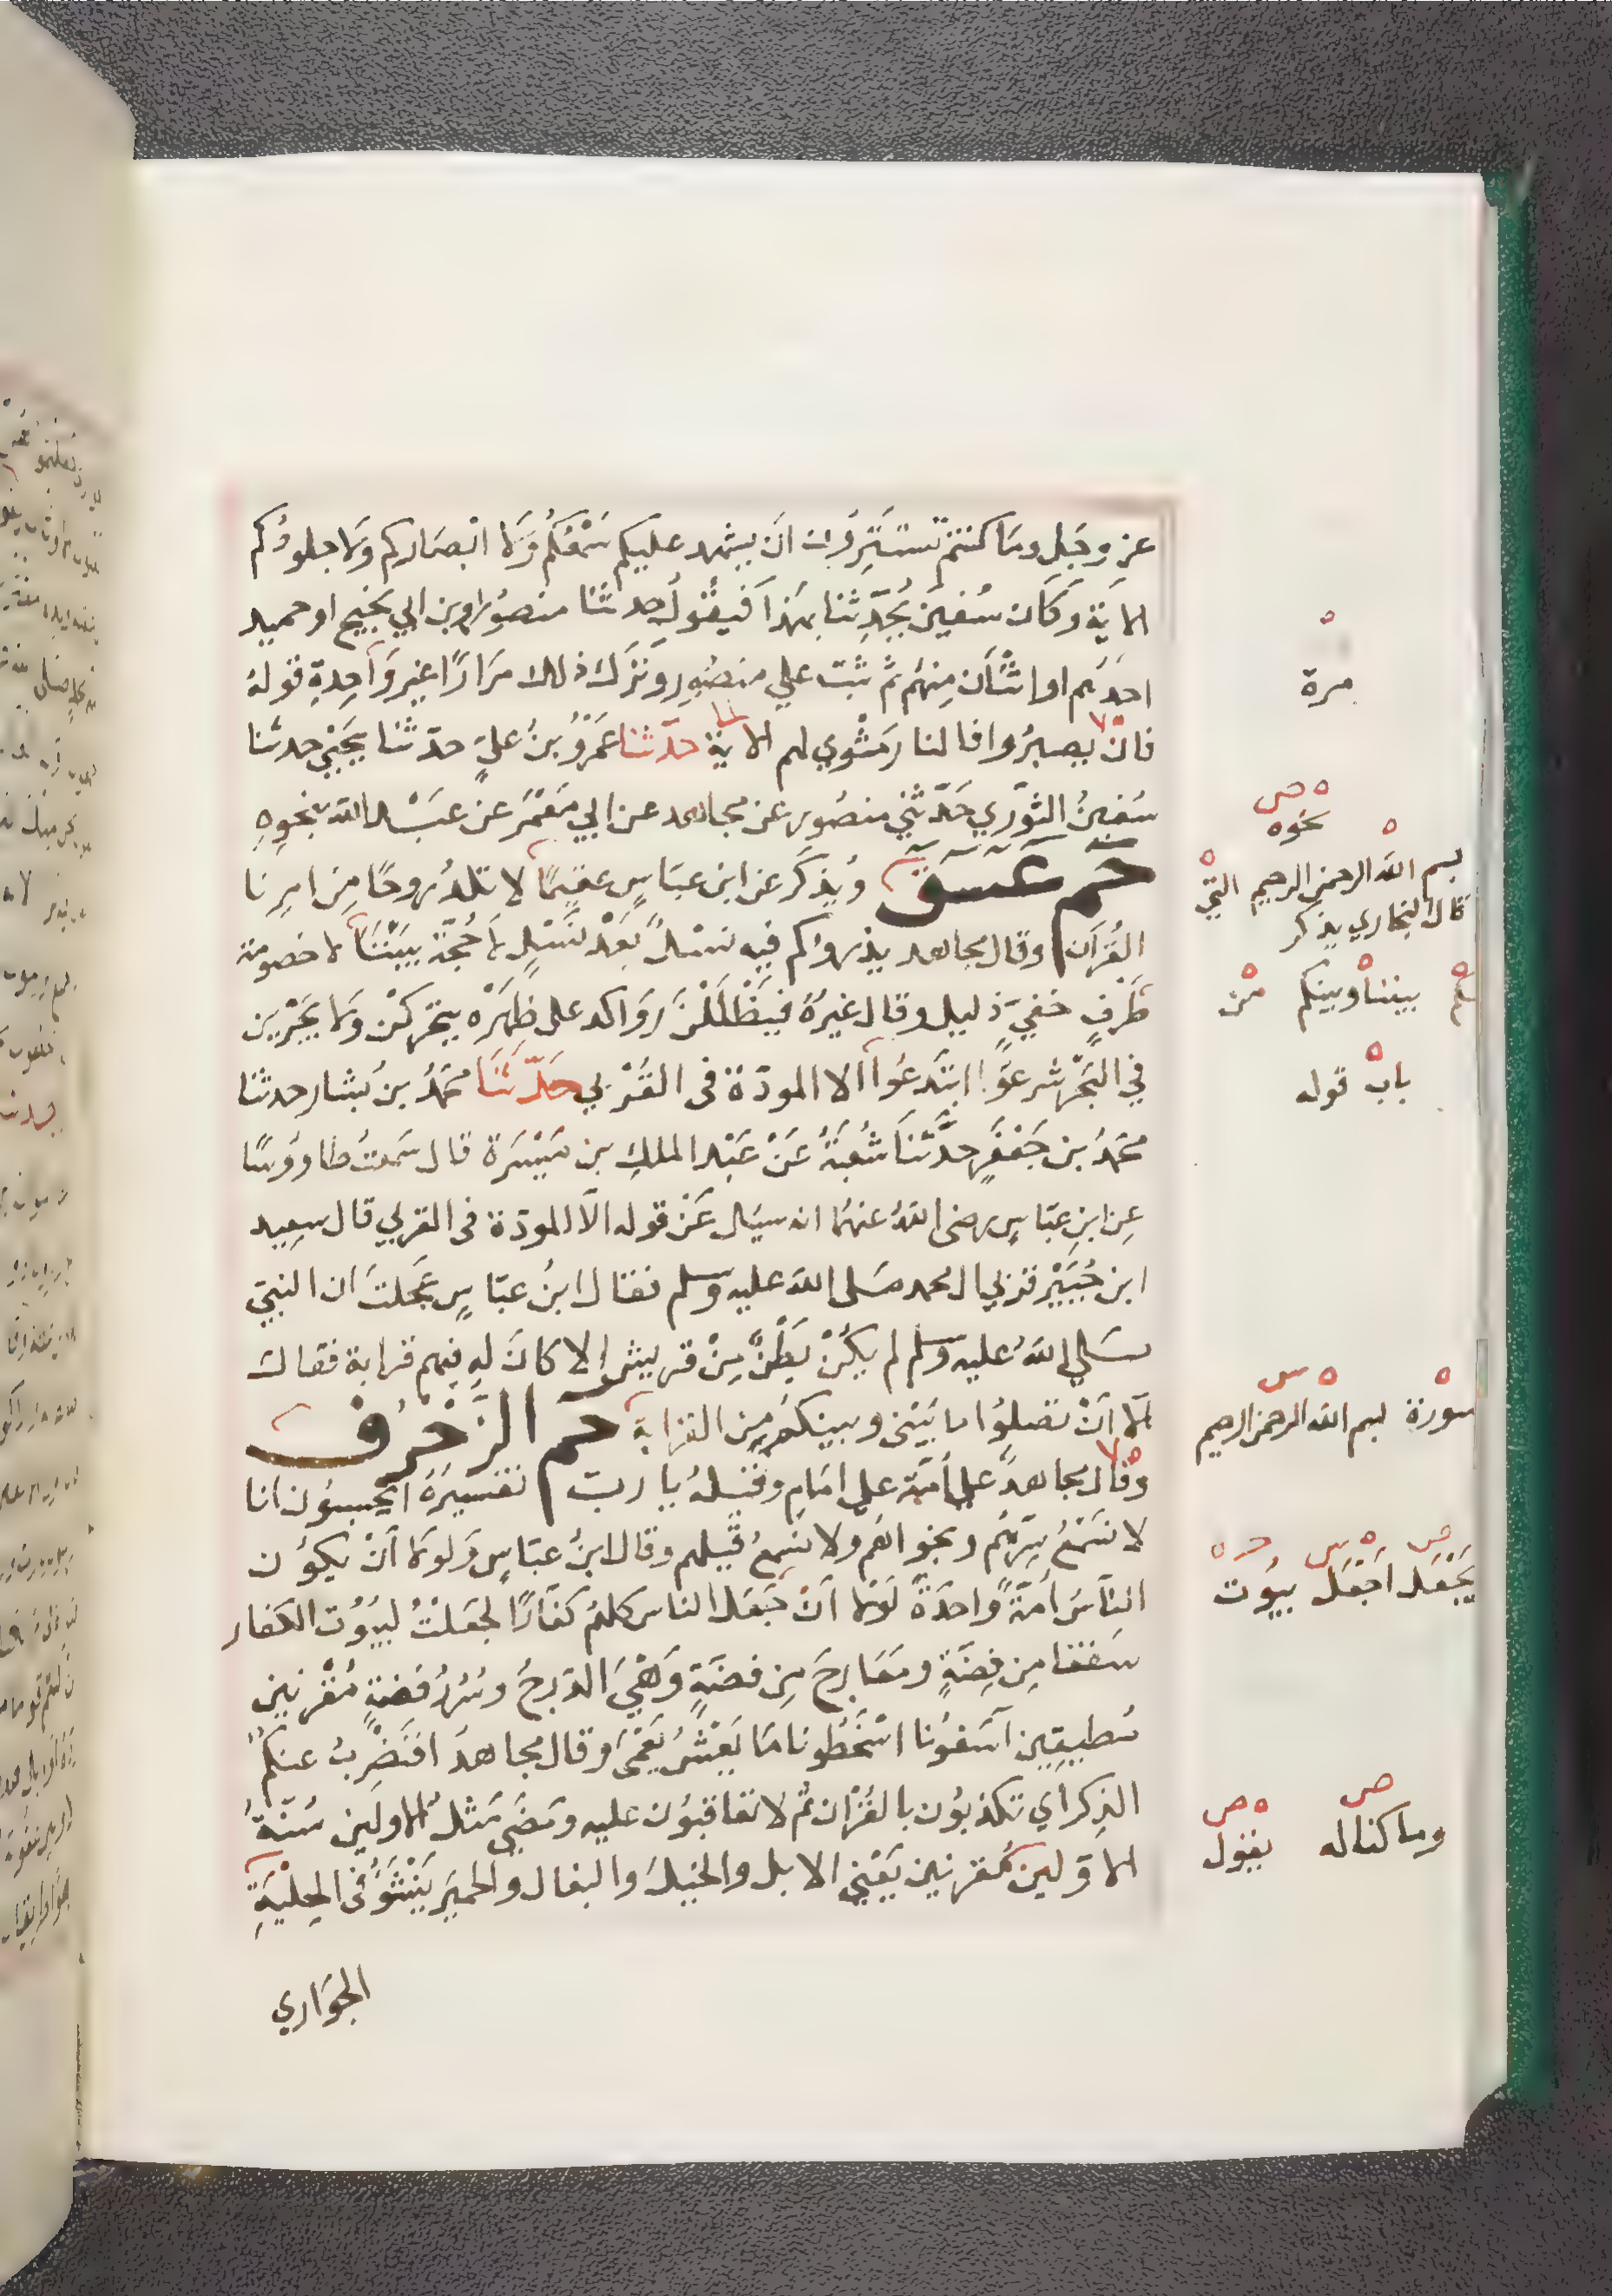 عز وجل وما كنتم تستترون ان يشهد عليكم سمعكم ولا ابصاركم ولا جلودكم
الاية وكان سفين يحدثنا بهذا فيقول حدثنا منصور او بن ابي نجيح او حميد
احدهم او اثنان منهم ثم ثبت علي منصور وترك ذلك مرارا غير واحدة قوله
فان يصبروا فالنار مثوي لهم الاية حدثنا عمرو بن علي حدثنا يحيى حدثنا
سفين الثوري حدثني منصور عن مجاهد عن ابي معمر عن عبد الله بنحوه
حم عسق ويذكر عن ابن عباس عقيما لا تلد روحا من امرنا
القرآن وقال مجاهد يذروكم فيه نسل بعد نسل لا حجة بيننا لا خصومة
طرف خفي ذليل وقال غيره فيظللن رواكد على ظهره يتحركن ولا يجرين
في البحر شرعوا ابتدعوا الا المودة في القربي حدثنا محمد بن بشار حدثنا
محمد بن جعفر حدثنا شعبة عن عبد الملك بن ميسرة قال سمعت طاووسا
عن ابن عباس رضى الله عنهما انه سيل عن قوله الا المودة في القربي قال سعيد
ابن جبير قربي ال محمد صلى الله عليه وسلم فقال ابن عباس عجلت ان النبي
صلي الله عليه وسلم لم يكن بطن من قريش الا كان له فيهم قرابة فقال
الا ان تصلوا ما بيني وبينكم من القرابة حم الزخرف
وقال مجاهد علي أمة علي امام وقيله يا رب تفسيره ايحسبون انا
لا نسمع سرهم ونجواهم ولا نسمع قيلهم وقال ابن عباس ولولا أن يكون
الناس أمة واحدة لولا أن جعل الناس كلهم كفارا لجعلت لبيوت الكفار
سقفا من فضة ومعارج من فضة وهي الدرج وسرر فضة مقرنين
مطيقين آسفونا اسخطونا ما يعش يعمى وقال مجاهد افنضرب عنكم
الذكر اي تكذبون بالقرآن ثم لا تعاقبون عليه ومضى مثل الاولين سنة
الاولين مقرنين يعني الابل والخيل والبغال والحمير ينشؤ في الحلية
الجواري
مرة
نحوه
بسم الله الرحمن الرحيم
قال البخاري يذكر
بيننا وبينكم من
باب قوله
سورة بسم الله الرحمن الرحيم
يجعل اجعل بيوت
وما كنا له يقول